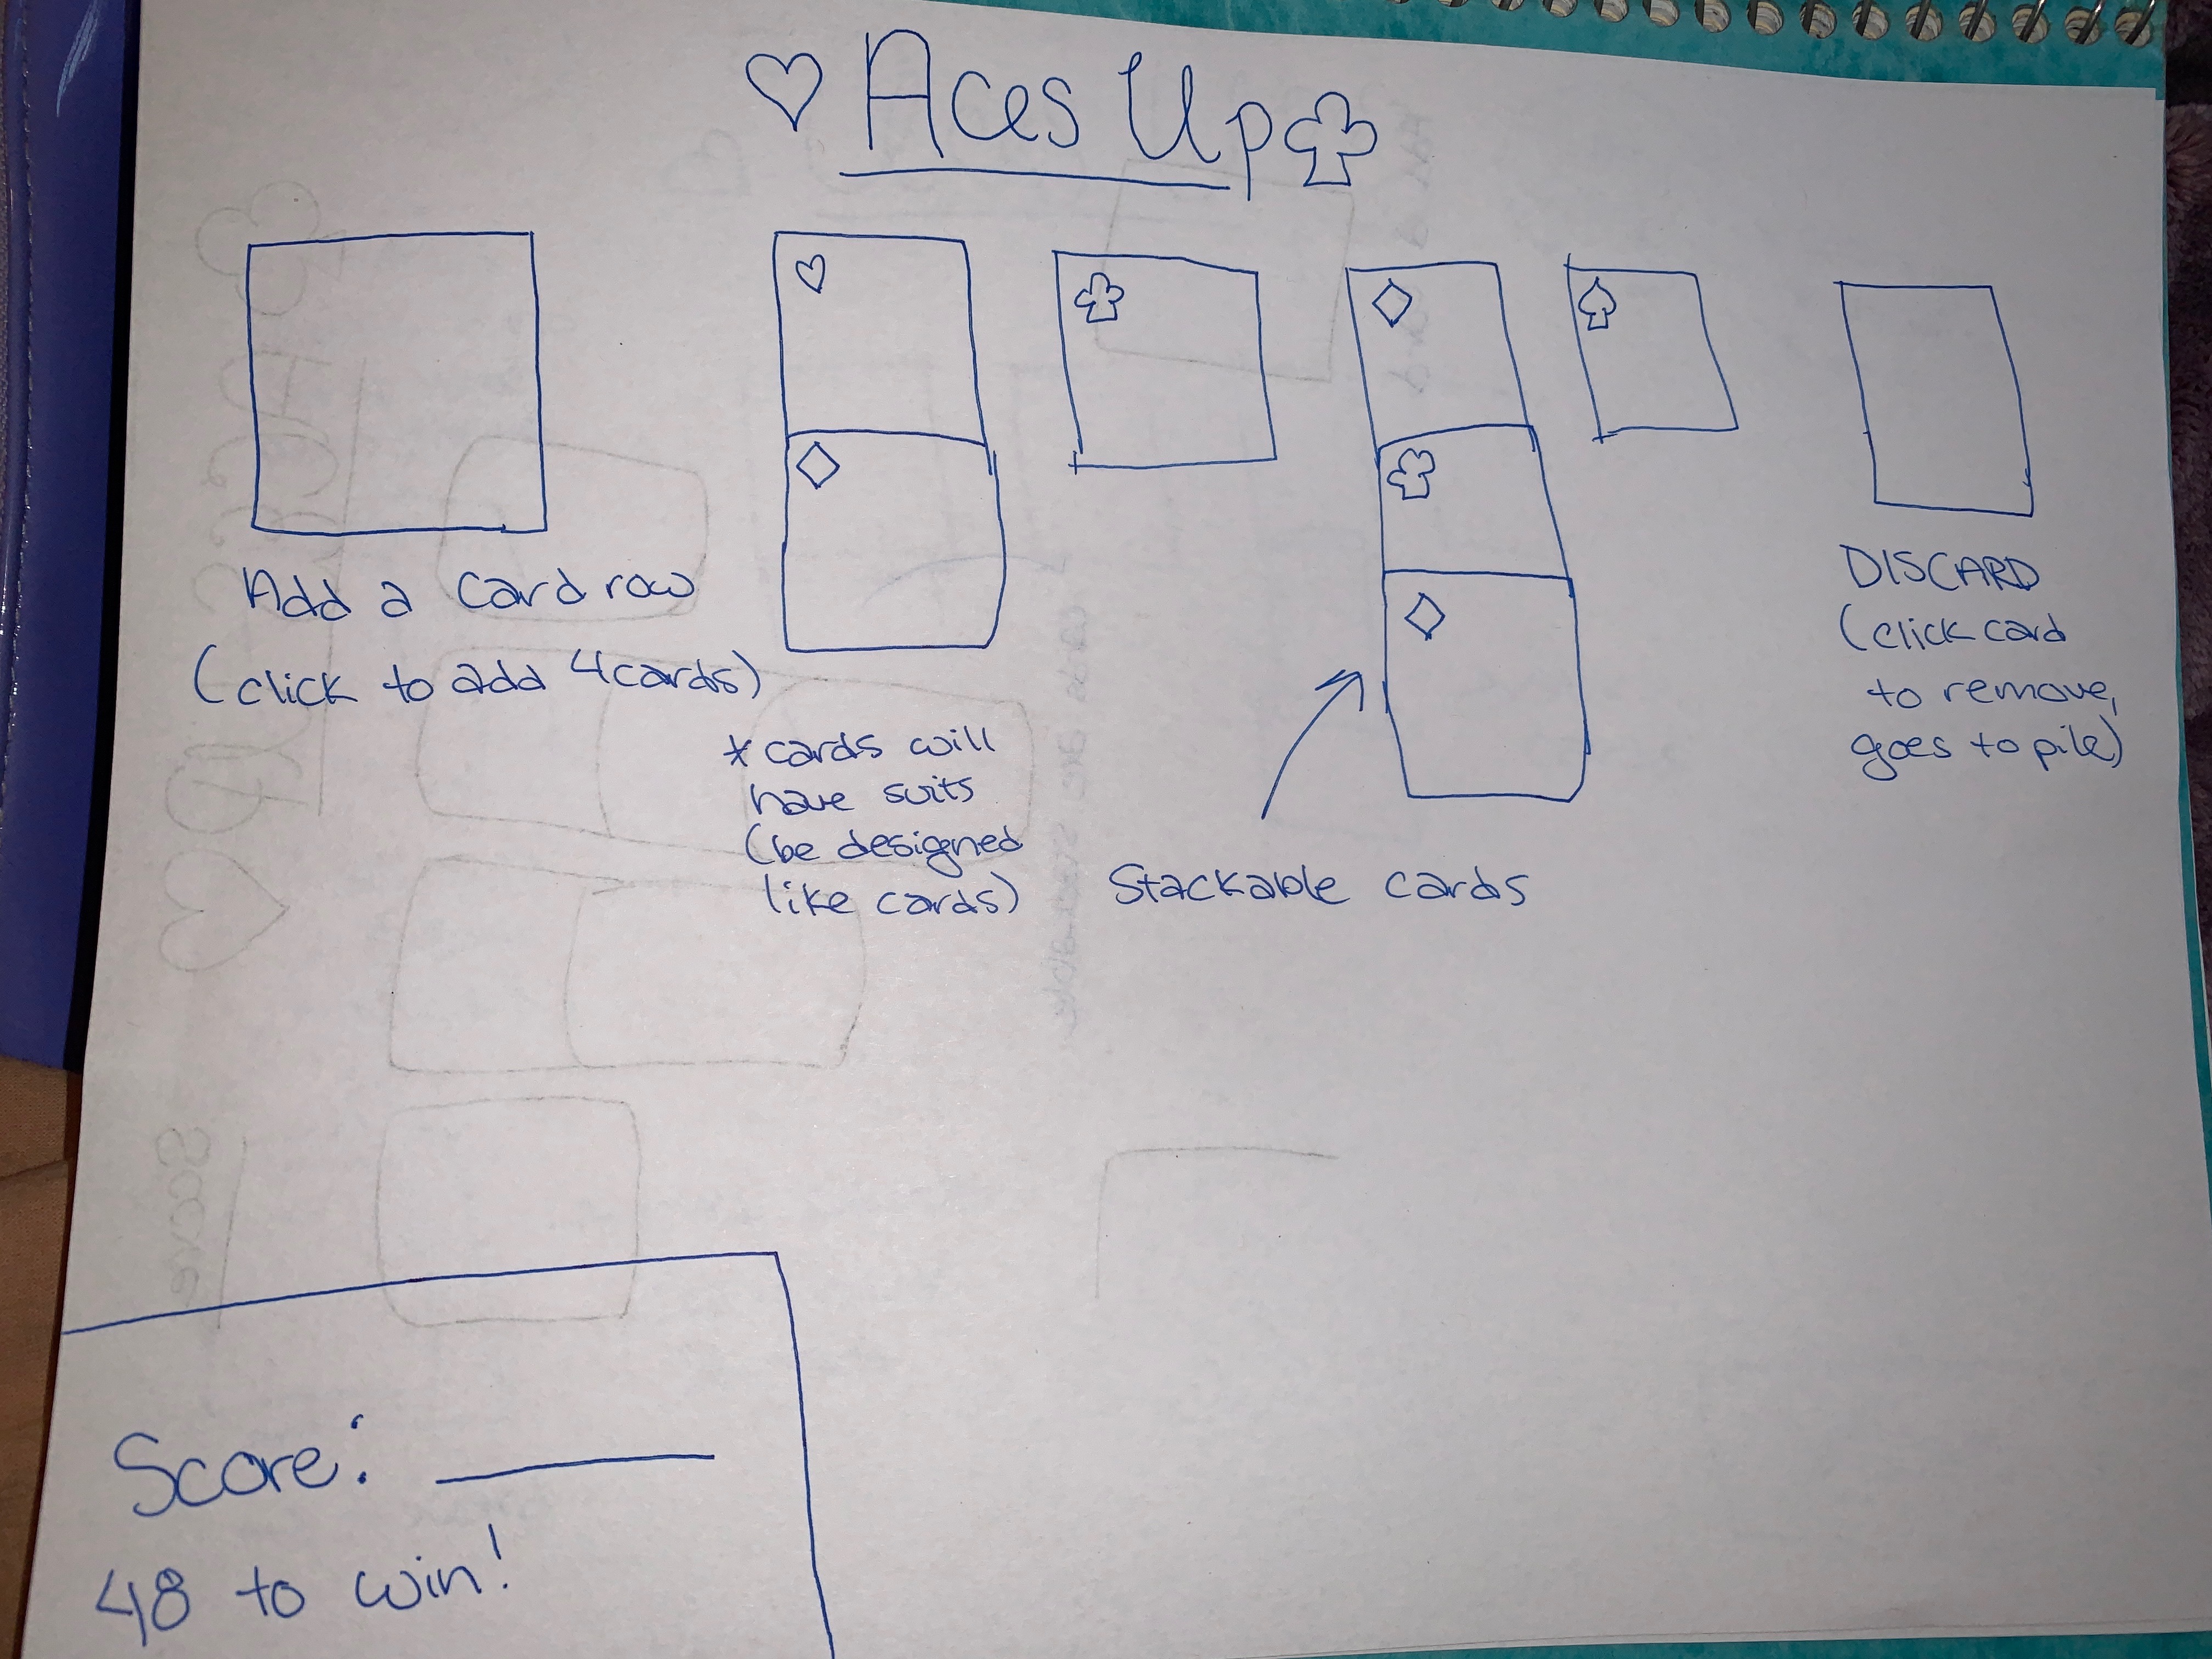 Aces Up
Add a card row
(click to add 4 cards)
* cards will
have suits
(be designed
like cards)
Stackable cards
DISCARD
(click card
to remove,
goes to pile)
Score:
48 to win!